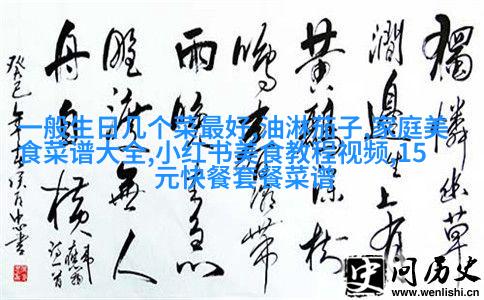 獨憐幽草
澗邊生上有
黄鸝深樹
鳴春潮帶
雨晚來急
野渡無人
舟自横
癸巳年
一般生日几个菜最好,油淋茄子,家庭美
食菜谱大全,小红书美食教程视频,15
元快餐套餐菜谱
问历史
www.wenlishi.cn